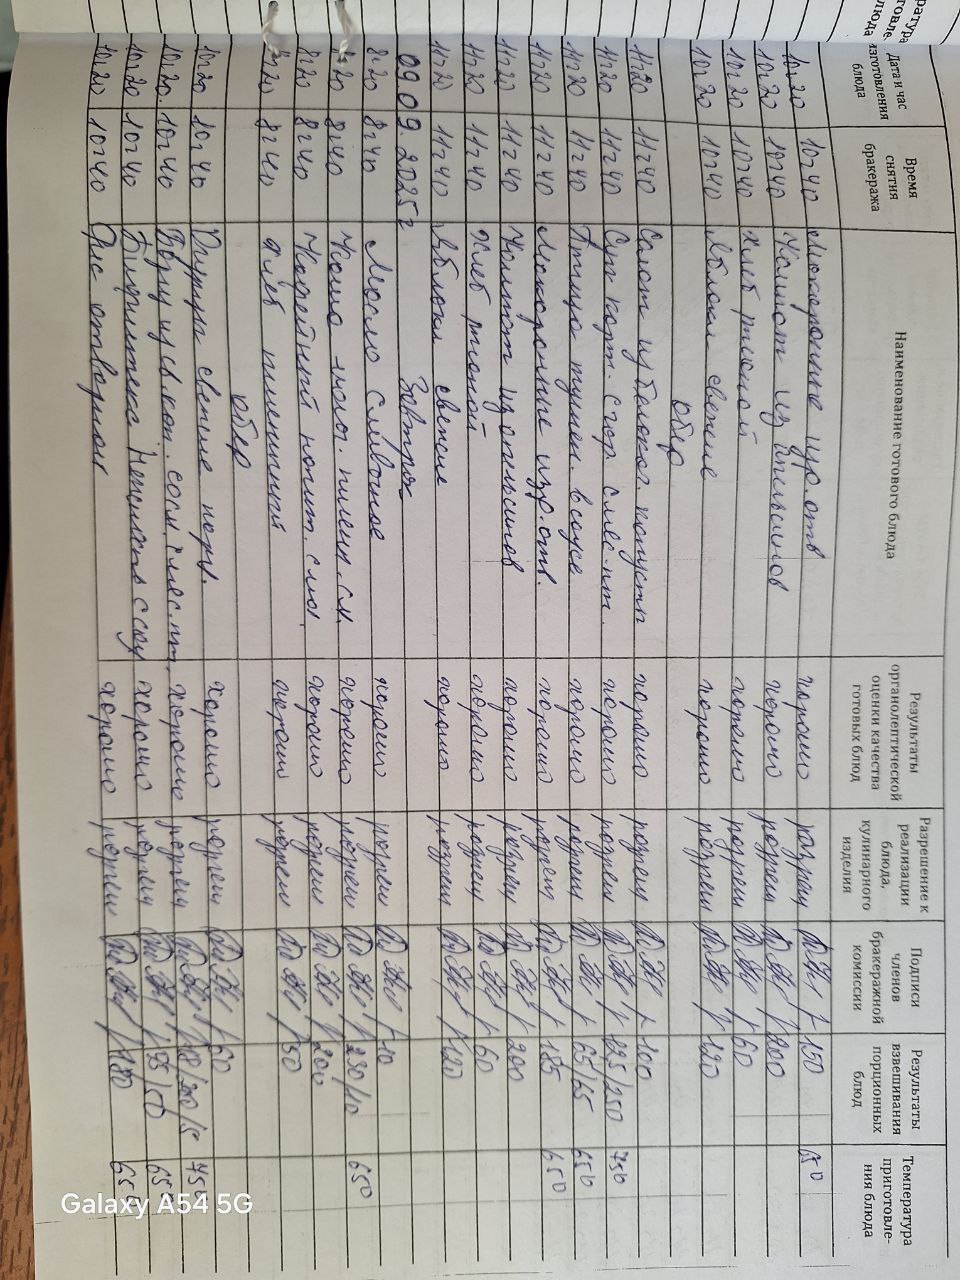 Дата и час изготовления блюда | Время снятия бракеража | Наименование готового блюда | Результаты органолептической оценки качества готовых блюд | Разрешение к реализации блюда, кулинарного изделия | Подписи членов бракеражной комиссии | Результаты взвешивания порционных блюд | Температура приготовле-ния блюда
10:20 10:40 Макаронные изд. отв хорошо разреш 150 650
10:20 10:40 Компот из апельсинов хорошо разреш 200
10:20 10:40 Хлеб ржаной хорошо разреш 60
10:20 10:40 Яблоки свежие хорошо разреш 120
Обед
11:20 11:40 Салат из белокоч. капусты хорошо разреш 100
11:20 11:40 Суп карт. с гор смес-пт. хорошо разреш 225/250 750
11:20 11:40 Птица тушен. в соусе хорошо разреш 65/65 650
11:20 11:40 Макаронные изд. отв. хорошо разреш 185 650
11:20 11:40 Компот из апельсинов хорошо разреш 200
11:20 11:40 Хлеб ржаной хорошо разреш 60
11:20 11:40 Яблоки свежие хорошо разреш 120
09.09.2025г Завтрак
8:20 8:40 Масло сливочное хорошо разреш 10
8:20 8:40 Каша молоч. пшен. см хорошо разреш 250/10 650
8:20 8:40 Кофейный напит. с мол. хорошо разреш 200
8:20 8:40 Хлеб пшеничный хорошо разреш 50
Обед
10:20 10:40 Огурцы свежие порц. хорошо разреш 60
10:20. 10:40 Борщ из св. кап. со см. смес. пт. хорошо разреш 750
10:20 10:40 хорошо разреш 95/50 650
10:20 10:40 Рис отварной хорошо разреш 180 650
Galaxy A54 5G